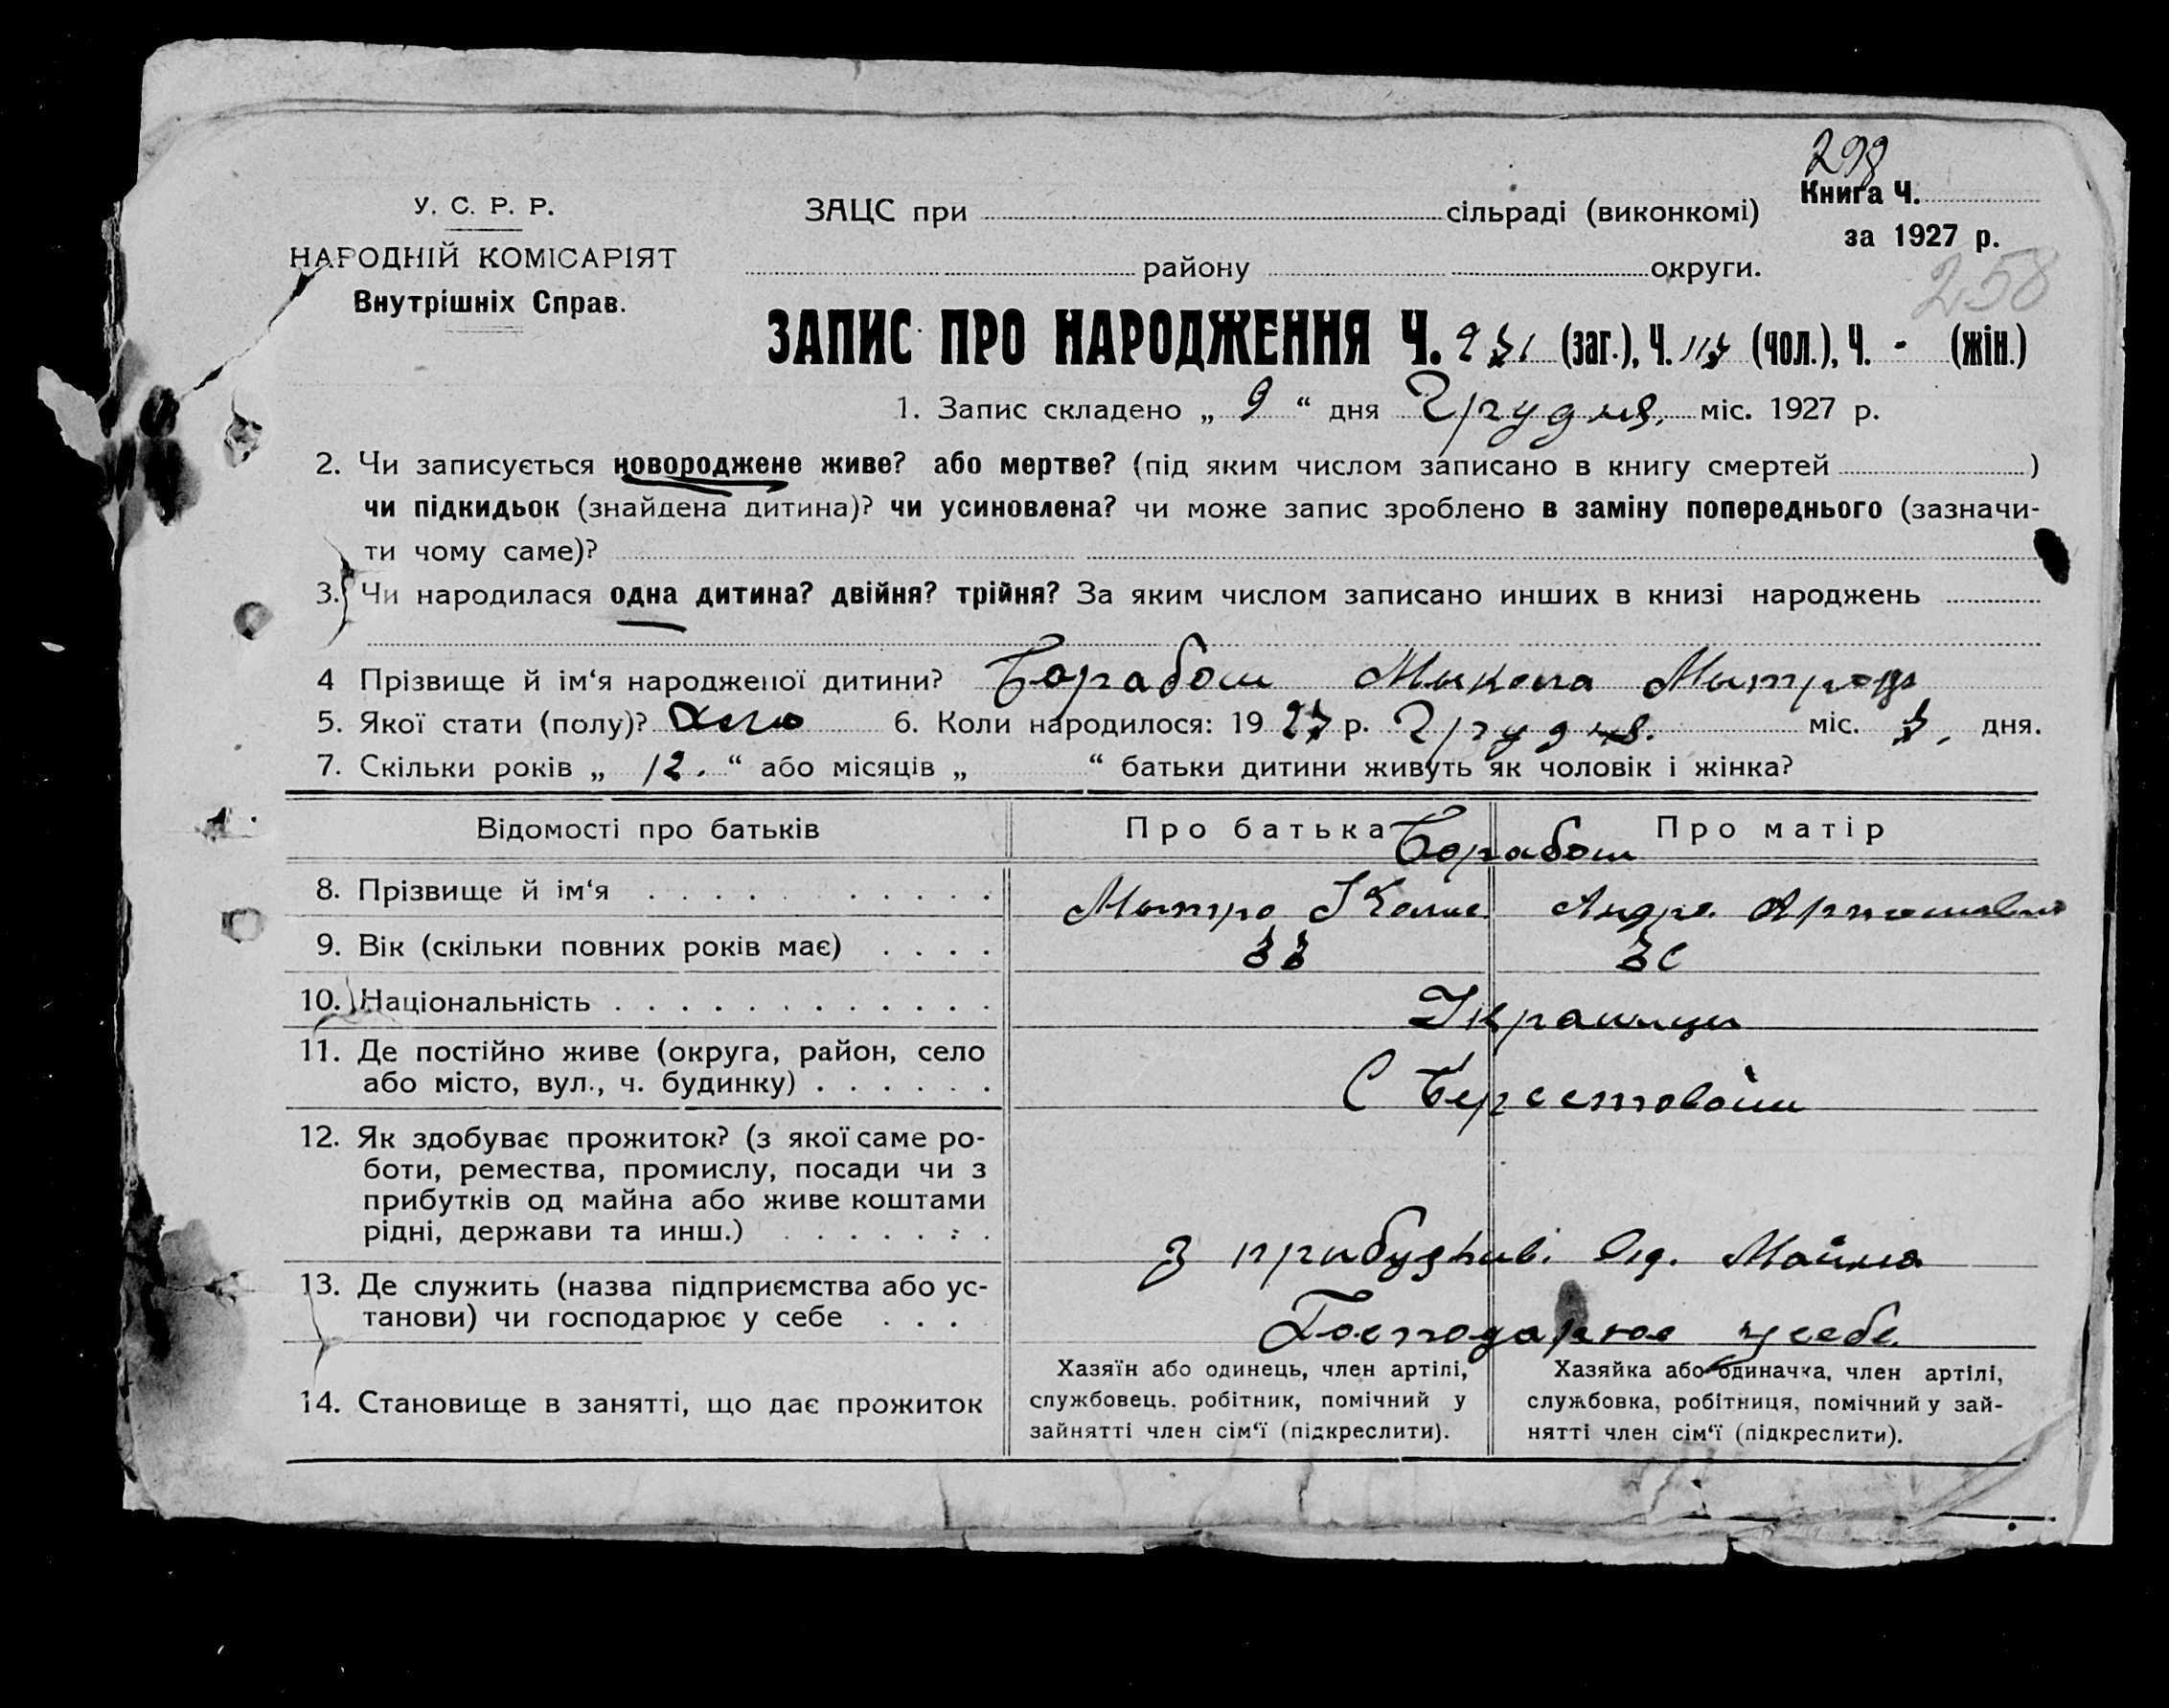 298
Книга Ч.
за 1927 р.
258
У. С. Р. Р.
НАРОДНІЙ КОМІСАРІЯТ
Внутрішніх Справ.
ЗАЦС при сільраді (виконкомі)
району округи.
ЗАПИС ПРО НАРОДЖЕННЯ Ч. (заг.), Ч. (чол.), Ч. - (жін.)
1. Запис складено „ 9 “ дня Грудня. міс. 1927 р.
2. Чи записується новороджене живе? або мертве? (під яким числом записано в книгу смертей )
чи підкидьок (знайдена дитина)? чи усиновлена? чи може запис зроблено в заміну попереднього (зазначи-
ти чому саме)?
3. Чи народилася одна дитина? двійня? трійня? За яким числом записано инших в книзі народжень
4 Прізвище й ім‘я народженої дитини? Борабош Микола
5. Якої стати (полу)? 6. Коли народилося: 19 27 р. Грудня. міс. дня.
7. Скільки років „ 12. “ або місяців „ “ батьки дитини живуть як чоловік і жінка?
Відомості про батьків Про батька Про матір
Борабош
8. Прізвище й ім‘я Митро
9. Вік (скільки повних років має) 33
10. Національність Україньци
11. Де постійно живе (округа, район, село
або місто, вул., ч. будинку) С
12. Як здобуває прожиток? (з якої саме ро-
боти, ремества, промислу, посади чи з
прибутків од майна або живе коштами
рідні, держави та инш.) З Од. Майна
13. Де служить (назва підприємства або ус-
танови) чи господарює у себе Господарює у себе.
14. Становище в занятті, що дає прожиток
Хазяїн або одинець, член артілі,
службовець, робітник, помічний у
зайнятті член сім‘ї (підкреслити).
Хазяйка або одиначка, член артілі,
службовка, робітниця, помічний у зай-
нятті член сім‘ї (підкреслити).